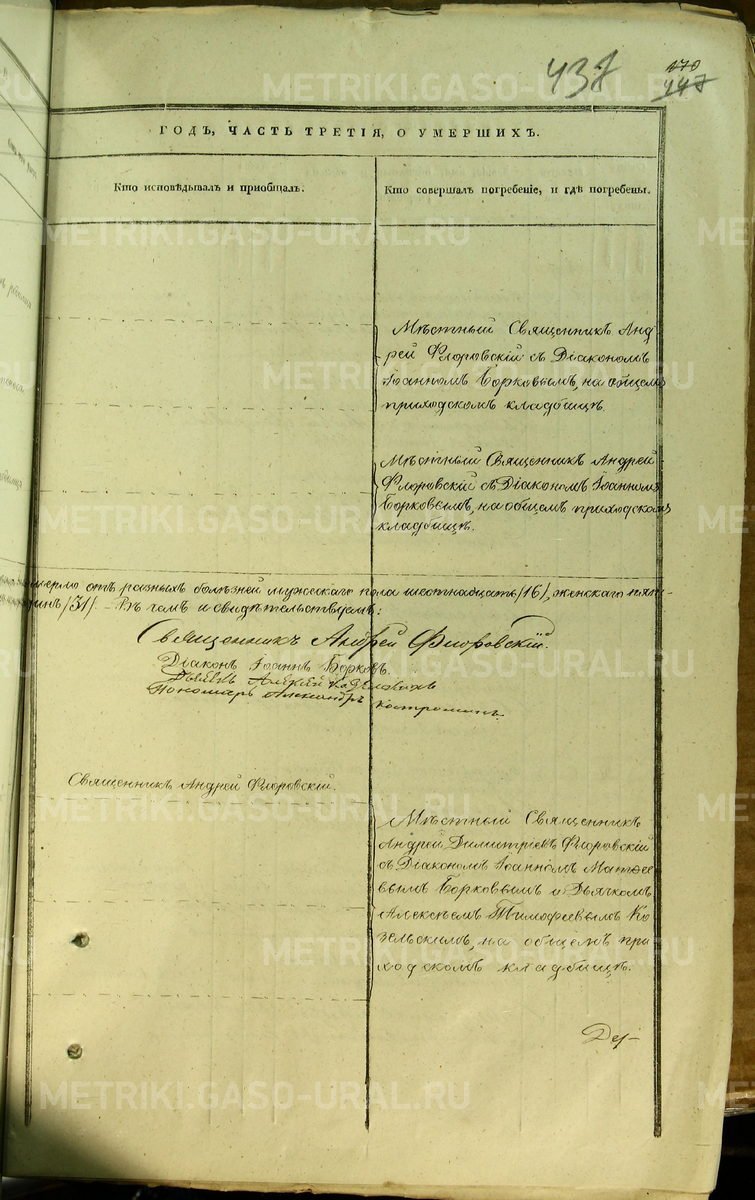 437
170
447
ГОДЪ, ЧАСТЬ ТРЕТІЯ, О УМЕРШИХЪ.
Кто исповѣдывалъ и пріобщалъ.
Кто совершалъ погребеніе, и гдѣ погребены.
Мѣстный Священникъ Анд
рей Флоровскій съ Діакономъ
Іоанномъ Борковымъ, на общемъ
приходскомъ кладбищѣ.
Мѣстный Священникъ Андрей
Флоровскій съ Діакономъ Іоанномъ
Борковымъ, на общемъ приходскомъ
кладбищѣ.
умерло отъ разныхъ болѣзней мужескаго пола шестнадцать /16/, женскаго
/31/. – Въ томъ и свидѣтельствуемъ:
Священникъ Андрей Флоровскій.
Діаконъ Іоаннъ Борковъ.
Дьячекъ Алексѣй
Пономарь Александръ Костроминъ.
Священникъ Андрей Флоровскій.
Мѣстный Священникъ
Андрей Димитріевъ Флоровскій
съ Діакономъ Іоанномъ Матѳее
вымъ Борковымъ и Дьячкомъ
Алексѣемъ Тимофеевымъ Ко
зельскимъ, на общемъ при
ходскомъ кладбищѣ.
METRIKI.GASO-URAL.RU